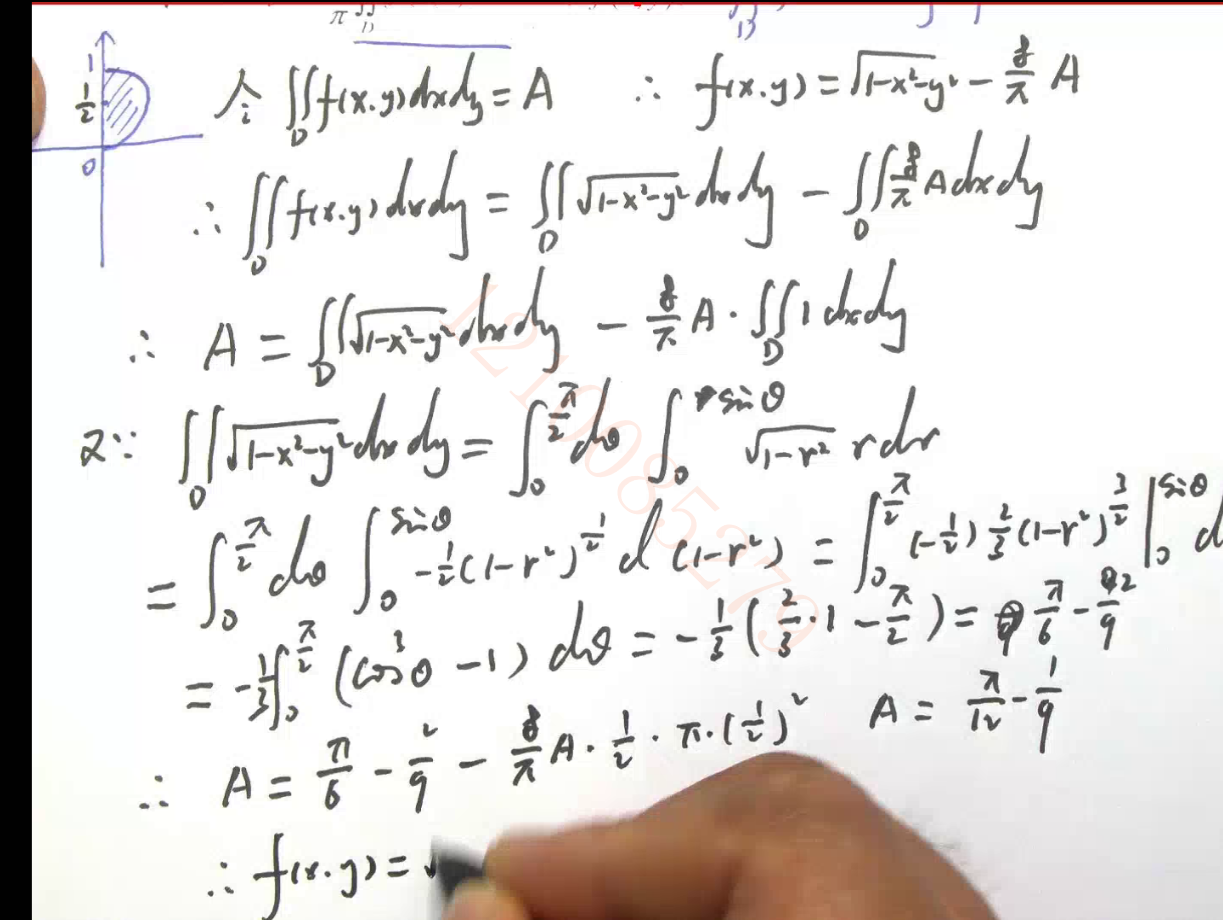 π ∬_D
D
1
1/2
0
令 ∬_D f(x.y)dxdy = A ∴ f(x.y) = √(1-x²-y²) - 8/π A
∴ ∬_D f(x.y)dxdy = ∬_D √(1-x²-y²) dxdy - ∬_D 8/π A dxdy
∴ A = ∬_D √(1-x²-y²) dxdy - 8/π A · ∬_D 1 dxdy
又∵ ∬_D √(1-x²-y²) dxdy = ∫_0^(π/2) dθ ∫_0^(sinθ) √(1-r²) r dr
= ∫_0^(π/2) dθ ∫_0^(sinθ) -1/2 (1-r²)^(1/2) d(1-r²) = ∫_0^(π/2) (-1/2) 2/3 (1-r²)^(3/2) |_0^(sinθ) d
= -1/3 ∫_0^(π/2) (cos³θ - 1) dθ = -1/3 (2/3 · 1 - π/2) = π/6 - 2/9
∴ A = π/6 - 2/9 - 8/π A · 1/2 · π · (1/2)² A = π/12 - 1/9
∴ f(x.y) = √
1210085279